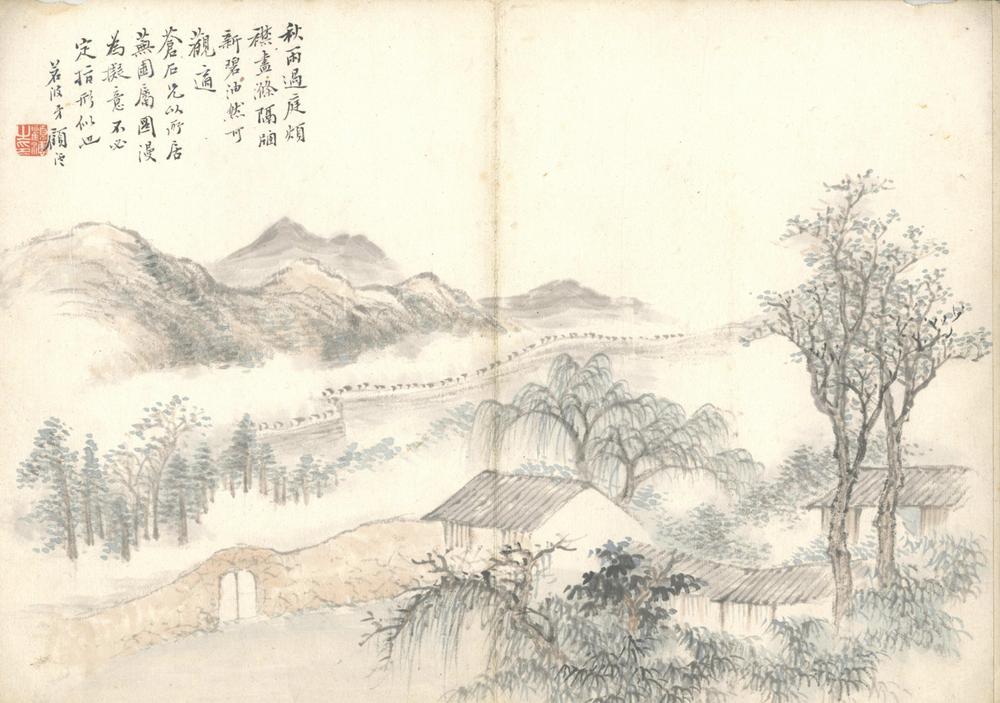 秋雨過庭煩
襟盡滌隔牖
新碧油然可
觀適
蒼石兄以所居
蕪圃屬圖漫
為擬意不必
定指形似也
若波弟顧澐